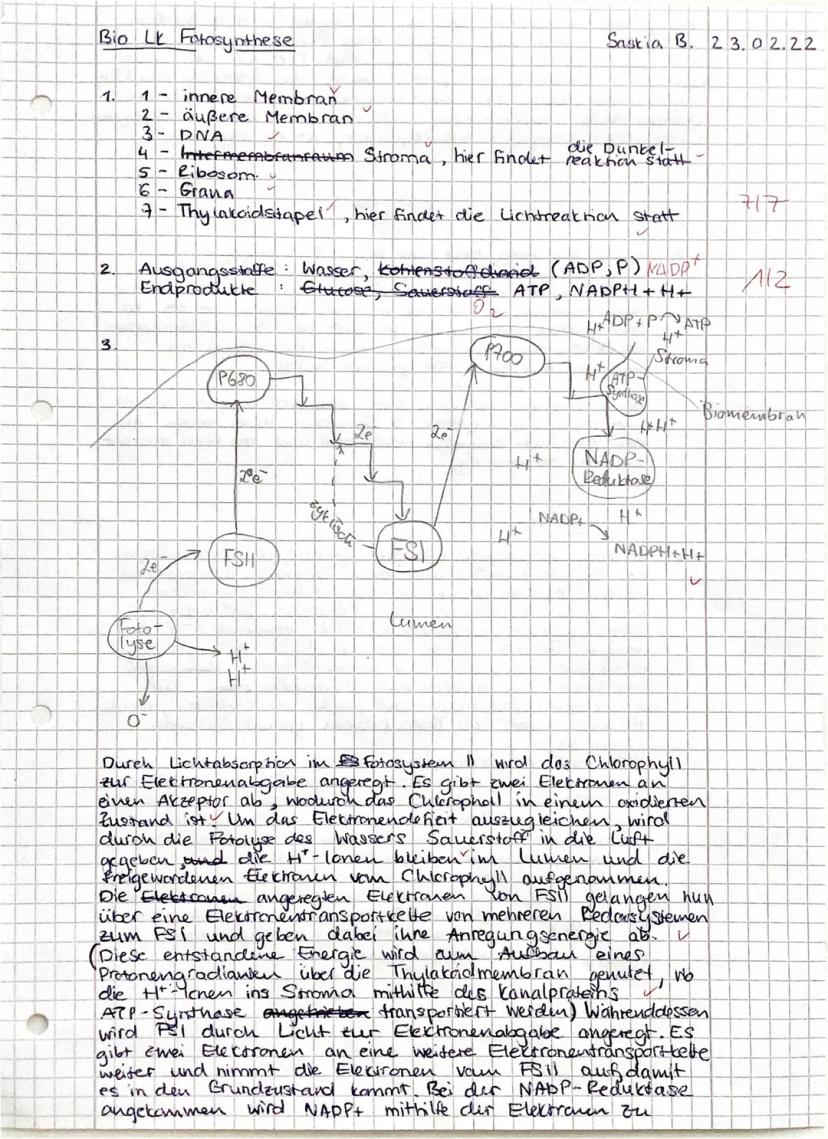 Bio LK Fotosynthese
Saskia B. 23.02.22
1. 1 - innere Membran
2 - äußere Membran
3 - DNA
4 - Intermembranraum Stroma, hier findet die Dunkel-
reaktion statt
5 - Ribosom
6 - Grana
7 - Thylakoidstapel, hier findet die Lichtreaktion statt
7/7
2. Ausgangsstoffe : Wasser, Kohlenstoffdioxid (ADP, P) NADP+
Endprodukte : Glucose, Sauerstoff ATP, NADPH + H+
O2
1/2
3.
H+ ADP + P ATP
H+
Stroma
P680
P700
H+
ATP-
Synthase
Biomembran
H+H+
2e-
2e-
2e-
H+
NADP-
Reduktase
zyklisch
NADP+
H+
H+
NADPH+H+
FSII
FSI
2e-
Lumen
Foto-
lyse
H+
H+
O-
Durch Lichtabsorption im FS Fotosystem II wird das Chlorophyll
zur Elektronenabgabe angeregt. Es gibt zwei Elektronen an
einen Akzeptor ab, wodurch das Chlorophyll in einem oxidierten
Zustand ist. Um das Elektronendefizit auszugleichen, wird
durch die Fotolyse des Wassers Sauerstoff in die Luft
gegeben, und die H+-Ionen bleiben im Lumen und die
freigewordenen Elektronen vom Chlorophyll aufgenommen.
Die Elektronen angeregten Elektronen von FSII gelangen nun
über eine Elektronentransportkette von mehreren Redoxsystemen
zum FSI und geben dabei ihre Anregungsenergie ab.
(Diese entstandene Energie wird zum Aufbau eines
Protonengradienten über die Thylakoidmembran genutzt, wo
die H+-Ionen ins Stroma mithilfe des Kanalproteins
ATP-Synthase angetrieben transportiert werden) Währenddessen
wird FSI durch Licht zur Elektronenabgabe angeregt. Es
gibt zwei Elektronen an eine weitere Elektronentransportkette
weiter und nimmt die Elektronen vom FSII auf, damit
es in den Grundzustand kommt. Bei der NADP-Reduktase
angekommen wird NADP+ mithilfe der Elektronen zu